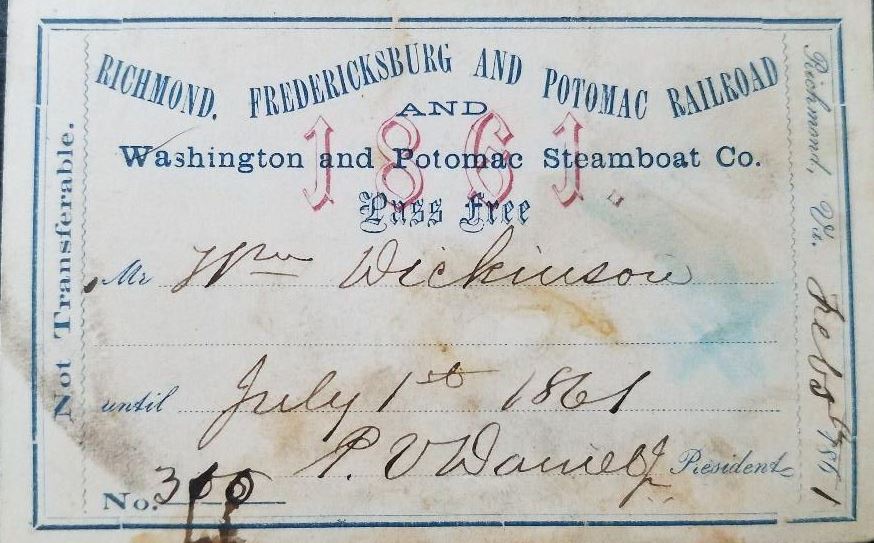 RICHMOND, FREDERICKSBURG AND POTOMAC RAILROAD
AND
1861
Washington and Potomac Steamboat Co.
Pass Free
Mr Wm Dickinson
until July 1st 1861
P. V. Daniel Jr President
No. 300
Not Transferable.
Richmond, Va. Feb 5th 1861